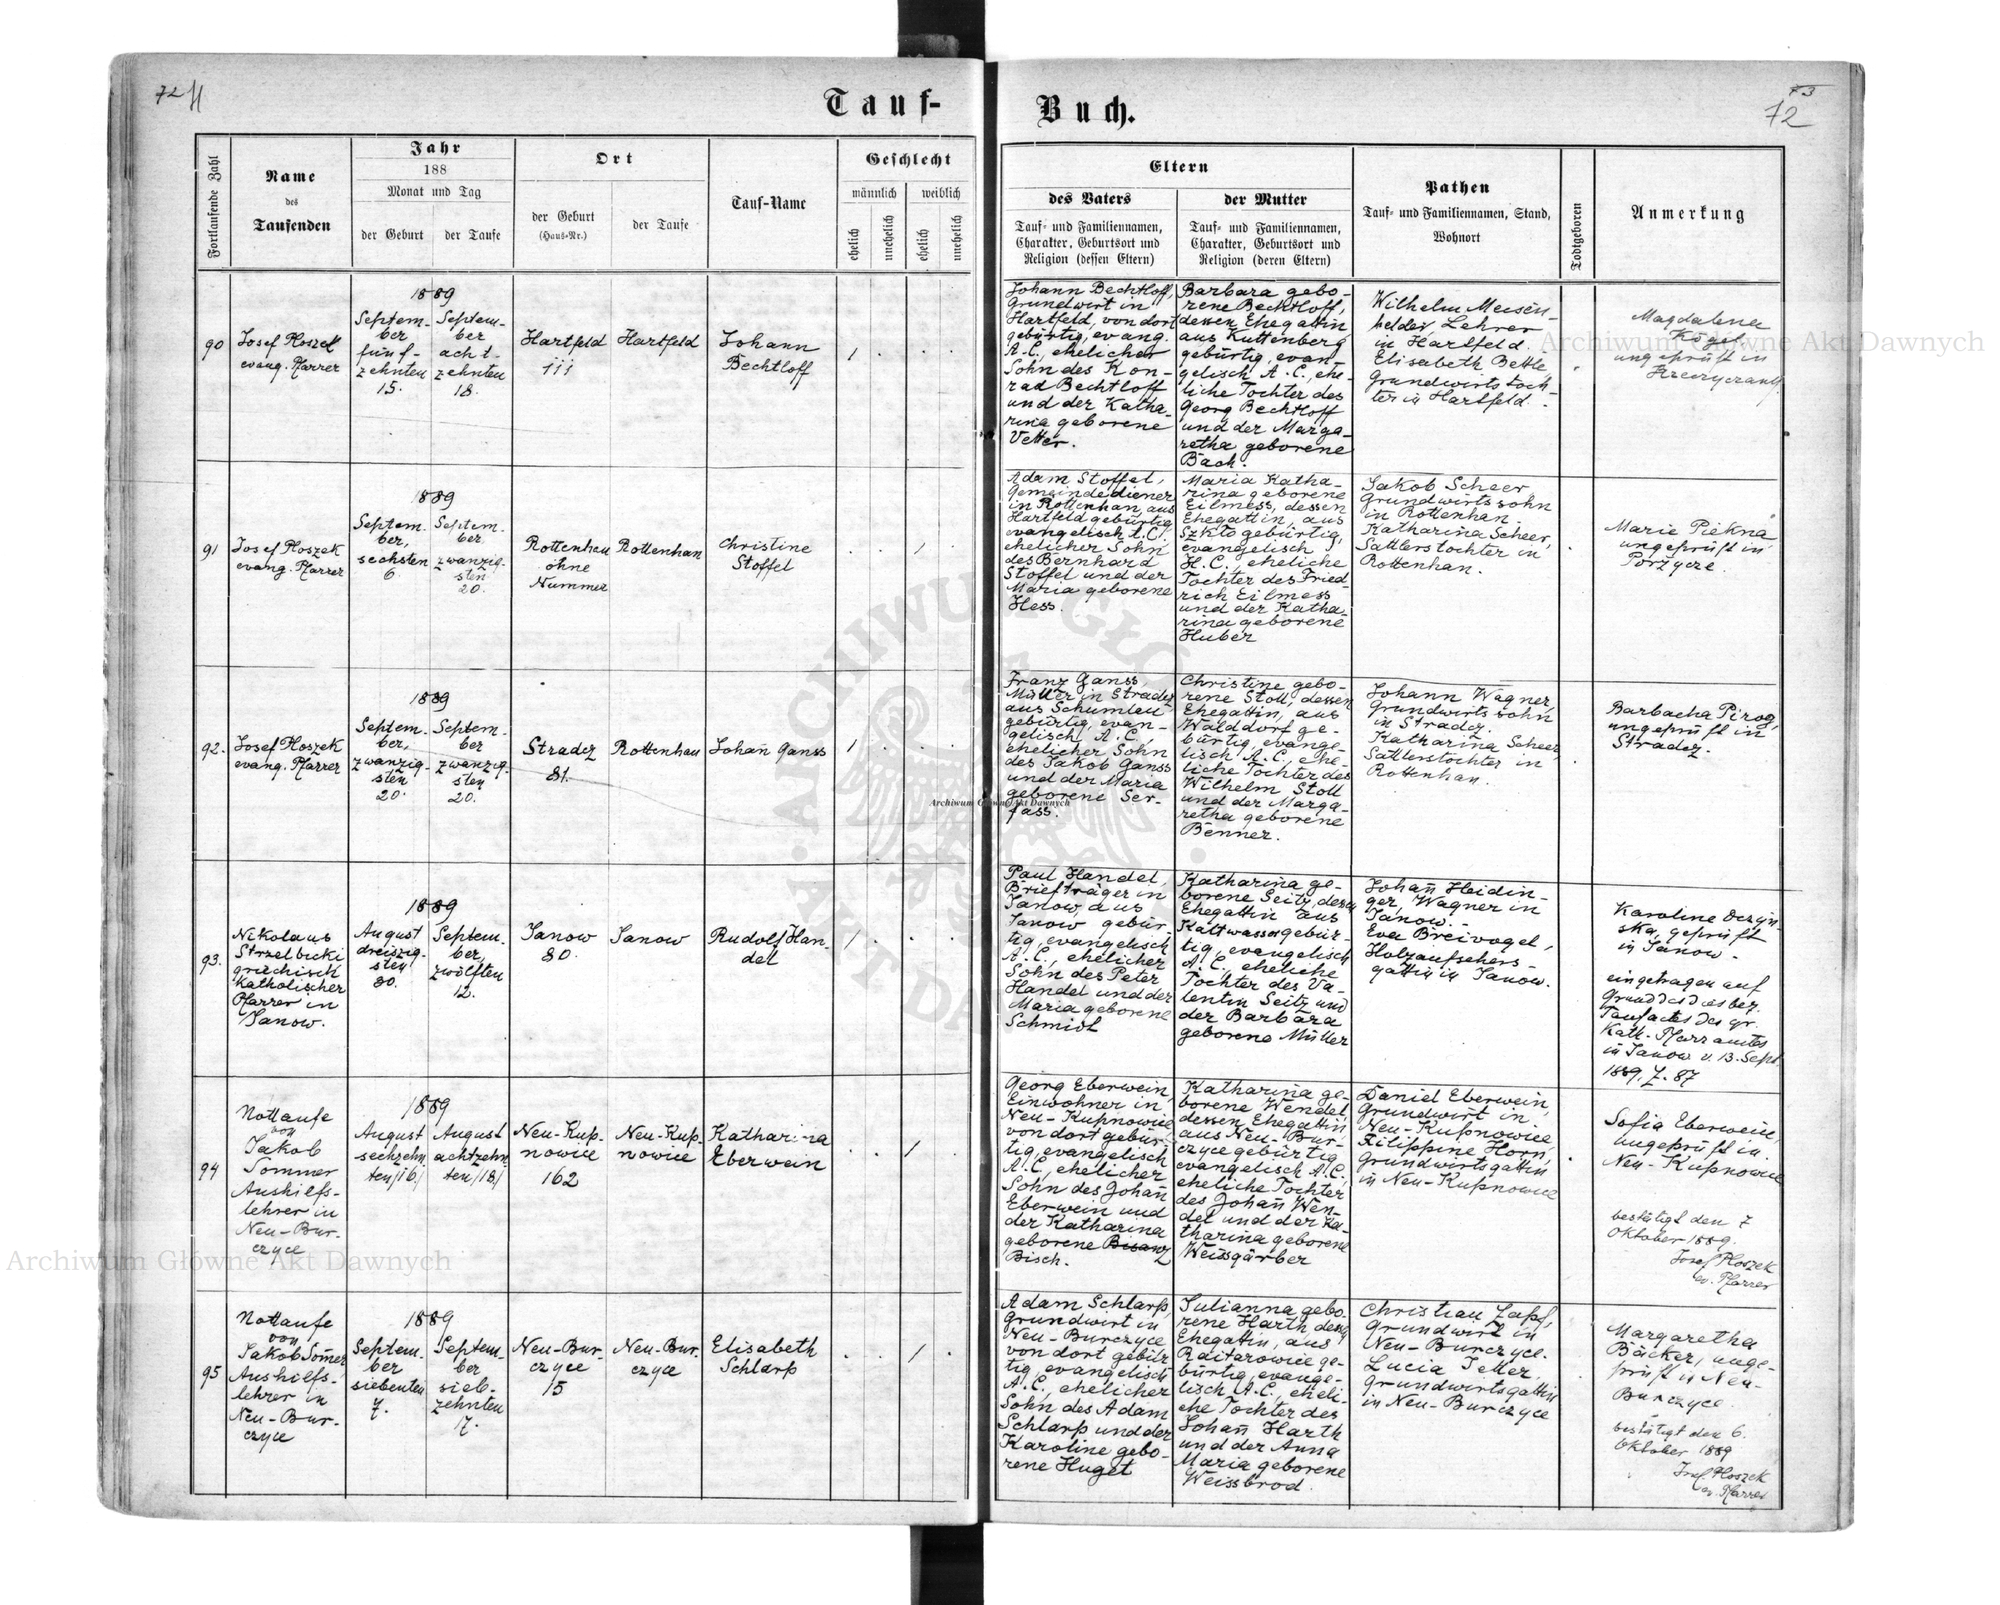 72
Tauf-
Buch.
73
72
Fortlaufende Zahl
Name
des
Taufenden
Jahr
188
Monat und Tag
der Geburt
der Taufe
Ort
der Geburt
(Haus-Nr.)
der Taufe
Tauf-Name
Geschlecht
männlich
weiblich
ehelich
unehelich
ehelich
unehelich
Eltern
des Vaters
Tauf- und Familiennamen,
Charakter, Geburtsort und
Religion (dessen Eltern)
der Mutter
Tauf- und Familiennamen,
Charakter, Geburtsort und
Religion (deren Eltern)
Pathen
Tauf- und Familiennamen, Stand,
Wohnort
Todtgeboren
Anmerkung
90
Josef Ploszek
evang. Pfarrer
1889
Septem-
ber
fünf-
zehnten
15.
Septem-
ber
acht-
zehnten
18.
Hartfeld
111
Hartfeld
Johann
Bechtloff
1
Johann Bechtloff,
Grundwirt in
Hartfeld, von dort
gebürtig, evang.
A.C., ehelicher
Sohn des Kon-
rad Bechtloff
und der Katha-
rina geborene
Vetter.
Barbara gebo-
rene Bechtloff,
dessen Ehegattin
aus Kuttenberg
gebürtig, evan-
gelisch A.C., ehe-
liche Tochter des
Georg Bechtloff
und der Marga-
retha geborene
Bach.
Wilhelm Meisen-
helder, Lehrer
in Hartfeld.
Elisabeth Bettle,
Grundwirtstoch-
ter in Hartfeld.
Magdalena
ungeprüft in
91
Josef Ploszek
evang. Pfarrer
1889
Septem-
ber,
sechsten
6
Septem-
ber
zwanzig-
sten
20.
Rottenhan
ohne
Nummer
Rottenhan
Christine
Stoffel
1
Adam Stoffel,
Gemeindediener
in Rottenhan, aus
Hartfeld gebürtig,
evangelisch A.C.,
ehelicher Sohn
des Bernhard
Stoffel und der
Maria geborene
Hess.
Maria Katha-
rina geborene
Eilmess, dessen
Ehegattin, aus
Szkło gebürtig,
evangelisch
H.C., eheliche
Tochter des Fried-
rich Eilmess
und der Katha-
rina geborene
Huber
Jakob Scheer
Grundwirtssohn
in Rottenhan.
Katharina Scheer,
Sattlerstochter in
Rottenhan.
Marie Piekna
ungeprüft in
Porzycze.
92.
Josef Ploszek
evang. Pfarrer
1889
Septem-
ber,
zwanzig-
sten
20.
Septem-
ber
zwanzig-
sten
20.
Stradcz
81.
Rottenhan
Johañ Ganss
1
Franz Ganss
Müller in Stradcz
aus Schumlau
gebürtig, evan-
gelisch, A.C.,
ehelicher Sohn
des Jakob Ganss
und der Maria
geborene Ser-
fass.
Christine gebo-
rene Stoll, dessen
Ehegattin, aus
Walddorf ge-
bürtig, evange-
lisch A.C., ehe-
liche Tochter des
Wilhelm Stoll
und der Marga-
retha geborene
Benner.
Johann Wagner,
Grundwirtssohn
in Stradcz.
Katharina Scheer,
Sattlerstochter in
Rottenhan.
Barbacha Pirog,
ungeprüft in
Stradcz.
93.
Nikolaus
Strzelbicki
griechisch
katholischer
Pfarrer in
Janow.
1889
August
dreiszig-
sten
30.
Septem-
ber,
zwölften
12.
Janow
80.
Janow
Rudolf Han-
del
1
Paul Handel,
Briefträger in
Janow, aus
Janow gebür-
tig, evangelisch
A.C., ehelicher
Sohn des Peter
Handel und der
Maria geborene
Schmidt
Katharina ge-
borene Seitz, dessen
Ehegattin aus
Kaltwasser gebür-
tig, evangelisch
A.C., eheliche
Tochter des Va-
lentin Seitz und
der Barbara
geborene Müller
Johañ Heidin-
ger, Wagner in
Janow.
Eva Breivogel,
Holzaufsehers-
gattin in Janow.
Karoline Dezyn-
ska, geprüft
in Janow.
eingetragen auf
Grund des diesbez.
Taufactes des gr.
Kath. Pfarramtes
in Janow v. 13. Sept.
1889. Z. 87
94
Nottaufe
von
Jakob
Sommer
Aushilfs-
lehrer in
Neu-Bur-
czyce
1889
August
sechzehn-
ten /16/
August
achtzehn-
ten /18/
Neu-Kup-
nowice
162
Neu-Kup-
nowice
Katharina
Eberwein
1
Georg Eberwein,
Einwohner in
Neu-Kupnowice
von dort gebür-
tig, evangelisch
A.C., ehelicher
Sohn des Johañ
Eberwein und
der Katharina
geborene Bisanz
Bisch.
Katharina ge-
borene Wendel,
dessen Ehegattin,
aus Neu-Bur-
czyce gebürtig,
evangelisch A.C.,
eheliche Tochter
des Johañ Wen-
del und der Ka-
tharina geborene
Weissgärber
Daniel Eberwein,
Grundwirt in
Neu-Kupnowice.
Filippine Horn,
Grundwirtsgattin
in Neu-Kupnowice
Sofia Eberwein,
ungeprüft in
Neu-Kupnowice
bestätigt den 7
Oktober 1889.
Josef Ploszek
ev. Pfarrer
95
Nottaufe
von
Jakob Som̄er
Aushilfs-
lehrer in
Neu-Bur-
czyce
1889
Septem-
ber
siebenten
7.
Septem-
ber
sieb-
zehnten
17.
Neu-Bur-
czyce
15
Neu-Bur-
czyce
Elisabeth
Schlarp
1
Adam Schlarp,
Grundwirt in
Neu-Burczyce
von dort gebür-
tig, evangelisch
A.C., ehelicher
Sohn des Adam
Schlarp und der
Karoline gebo-
rene Huget
Julianna gebo-
rene Harth, dessen
Ehegattin, aus
Raitarowice ge-
bürtig, evange-
lisch A.C., eheli-
che Tochter des
Johañ Harth
und der Anna
Maria geborene
Weissbrod.
Christian Zapf,
Grundwirt in
Neu-Burczyce.
Lucia Jeller,
Grundwirtsgattin
in Neu-Burczyce
Margaretha
Bäcker, unge-
prüft in Neu-
Burczyce.
bestätigt den 6.
Oktober 1889
Josef Ploszek
ev. Pfarrer
Archiwum Główne Akt Dawnych
Archiwum Główne Akt Dawnych
Archiwum Główne Akt Dawnych
ARCHIWUM GŁÓWNE AKT DAWNYCH